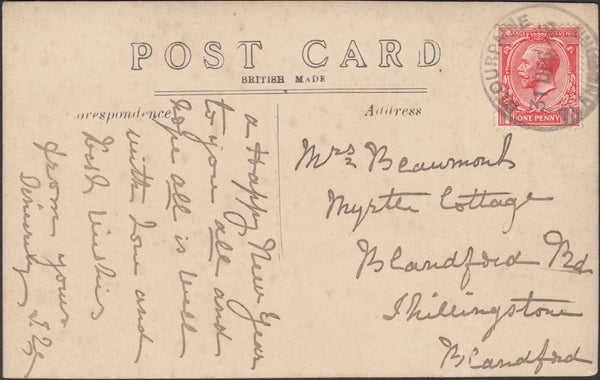 POST CARD
BRITISH MADE
Correspondence
Address
POSTAGE & REVENUE
ONE PENNY
DURWESTON
31 DE
BLANDFORD
a Happy New Year
to you all and
hope all is well
with love and
best wishes
from yours
Sincerely
Mrs Beaumont
Myrtle Cottage
Blandford Rd
Shillingstone
Blandford